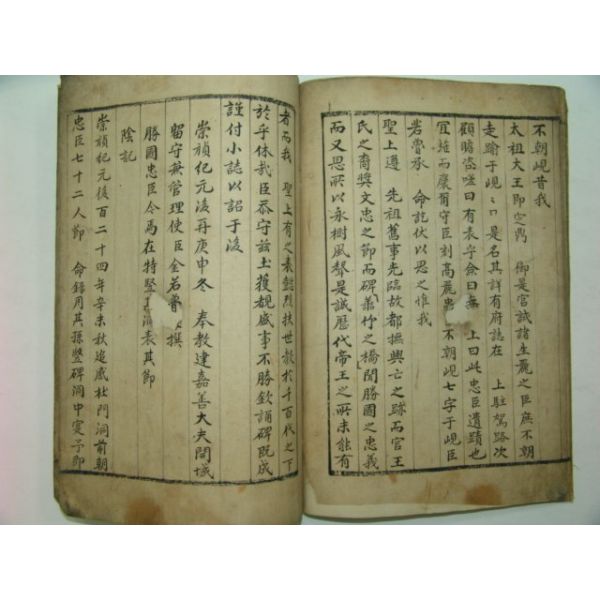 不朝峴昔我
太祖大王卽定鼎 御是宮誠諸生麗之臣庶不朝
走踰于峴 是名其詳有府誌在 上駐駕路次
顧瞻咨嗟曰有表乎僉曰無 上曰此忠臣遺蹟也
宜摧而廢爾守臣刻高麗忠 不朝峴七字于峴臣
若魯承 命訖伏以思之惟我
聖上遵 先祖舊事先臨故都撫興亡之跡而官王
氏之裔奬文忠之節而碑 竹之 聞勝國之忠義
而又思所以永樹風聲是誠歷代帝王之所未能有
者而我 聖上有之表 烈扶世敎於千百代之下
於乎休哉臣忝守玆土獲覩盛事不勝欽誦碑旣成
謹付小誌以詔于後
崇禎紀元後再庚申冬 奉敎建嘉善大夫開城
留守兼管理使臣金若魯 撰
勝國忠臣今焉在特竪 洞表其節
陰記
崇禎紀元後百二十四年辛未秋追感杜門洞前朝
忠臣七十二人節 命錄用其孫竪碑洞中寔予卽